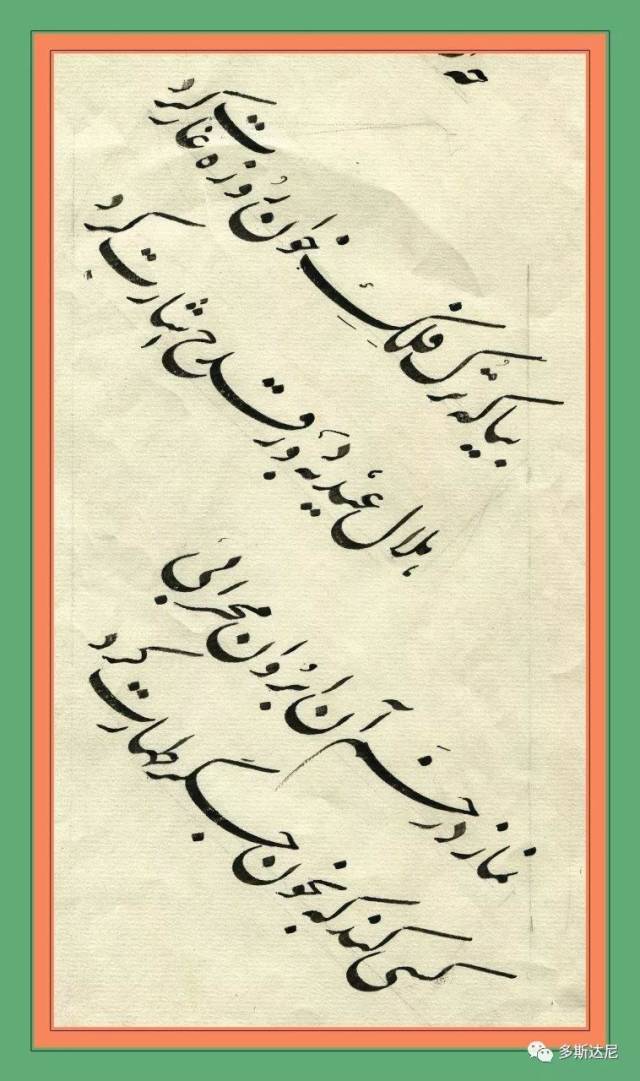 بیا که ترک فلک خوان روزه غارت کرد
هلال عید به دور قدح اشارت کرد
نماز در خم آن ابروان محرابی
کسی کند که بخون جگر طهارت کرد
多斯达尼